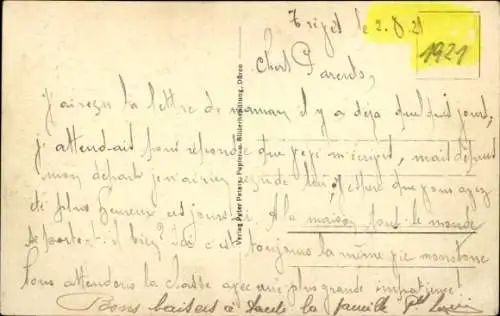 le 2.8.21
1921
Chers Parents,
J'ai reçu la lettre de maman il y a déjà quelques jours,
j'attendais pour répondre que pépé m'écrivit, mais depuis
mon départ je n'ai rien reçu de lui, j'espère que vous avez
été plus heureux ces jours-ci. A la maison, tout le monde
se porte-t-il bien? Ici c'est toujours la même vie monotone
Nous attendons la classe avec une plus grande impatience!
Bons baisers à toute la famille
Verlag Peter Peters, Papier- u. Bilderhandlung, Düren